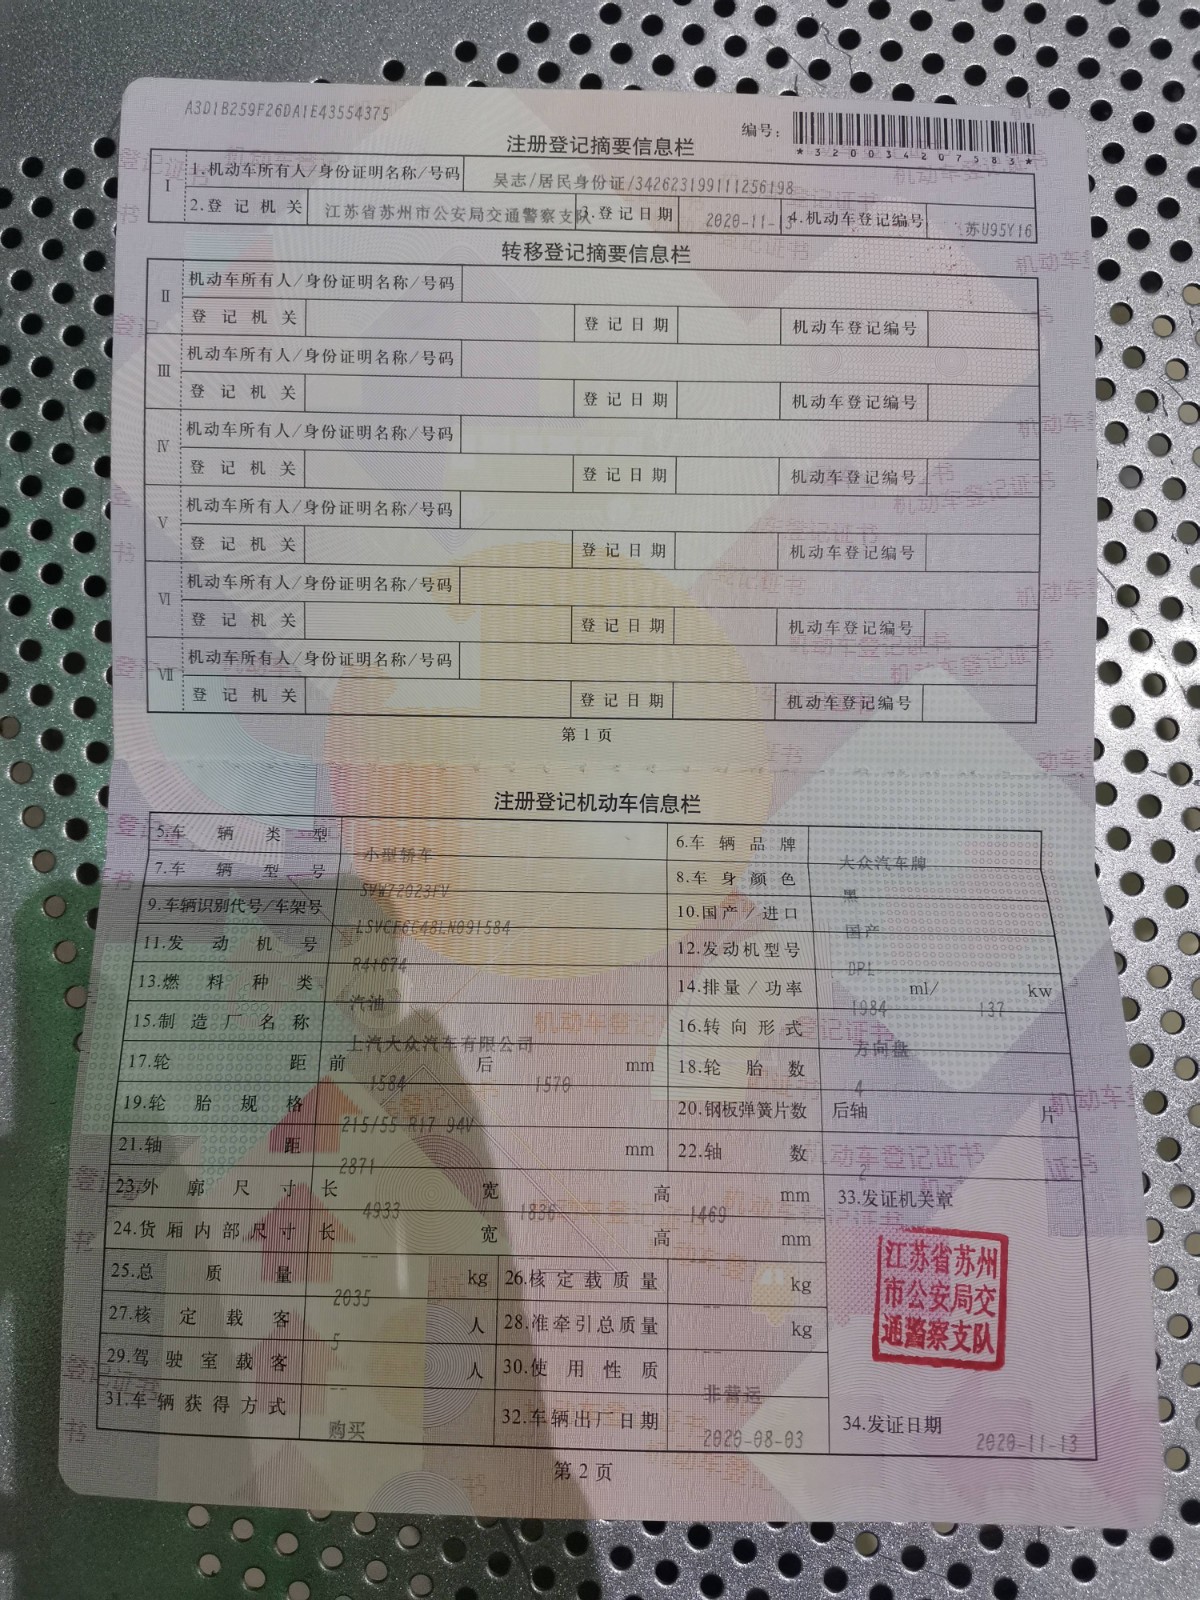 A3D1B259F26DA1E43554375
编号：
*320034207583*
注册登记摘要信息栏
Ⅰ 1.机动车所有人/身份证明名称/号码 吴志/居民身份证/342623199111256198
2.登记机关 江苏省苏州市公安局交通警察支队 3.登记日期 2020-11-13 4.机动车登记编号 苏U95Y16
转移登记摘要信息栏
Ⅱ 机动车所有人/身份证明名称/号码
登记机关 登记日期 机动车登记编号
Ⅲ 机动车所有人/身份证明名称/号码
登记机关 登记日期 机动车登记编号
Ⅳ 机动车所有人/身份证明名称/号码
登记机关 登记日期 机动车登记编号
Ⅴ 机动车所有人/身份证明名称/号码
登记机关 登记日期 机动车登记编号
Ⅵ 机动车所有人/身份证明名称/号码
登记机关 登记日期 机动车登记编号
Ⅶ 机动车所有人/身份证明名称/号码
登记机关 登记日期 机动车登记编号
第1页
注册登记机动车信息栏
5.车辆类型 小型轿车 6.车辆品牌 大众汽车牌
7.车辆型号 SVW72023FV 8.车身颜色 黑
9.车辆识别代号/车架号 LSVCF6C48LN091584 10.国产/进口 国产
11.发动机号 R41674 12.发动机型号 DPL
13.燃料种类 汽油 14.排量/功率 1984 ml/ 137 kw
15.制造厂名称 上汽大众汽车有限公司 16.转向形式 方向盘
17.轮距 前 1584 后 1570 mm 18.轮胎数 4
19.轮胎规格 215/55 R17 94V 20.钢板弹簧片数 后轴 片
21.轴距 2871 mm 22.轴数 2
23.外廓尺寸 长 4933 宽 1836 高 1469 mm 33.发证机关章
24.货厢内部尺寸 长 -- 宽 高 mm
25.总质量 2035 kg 26.核定载质量 -- kg
27.核定载客 5 人 28.准牵引总质量 -- kg
29.驾驶室载客 -- 人 30.使用性质 非营运
31.车辆获得方式 购买 32.车辆出厂日期 2020-08-03 34.发证日期 2020-11-13
江苏省苏州
市公安局交
通警察支队
第2页